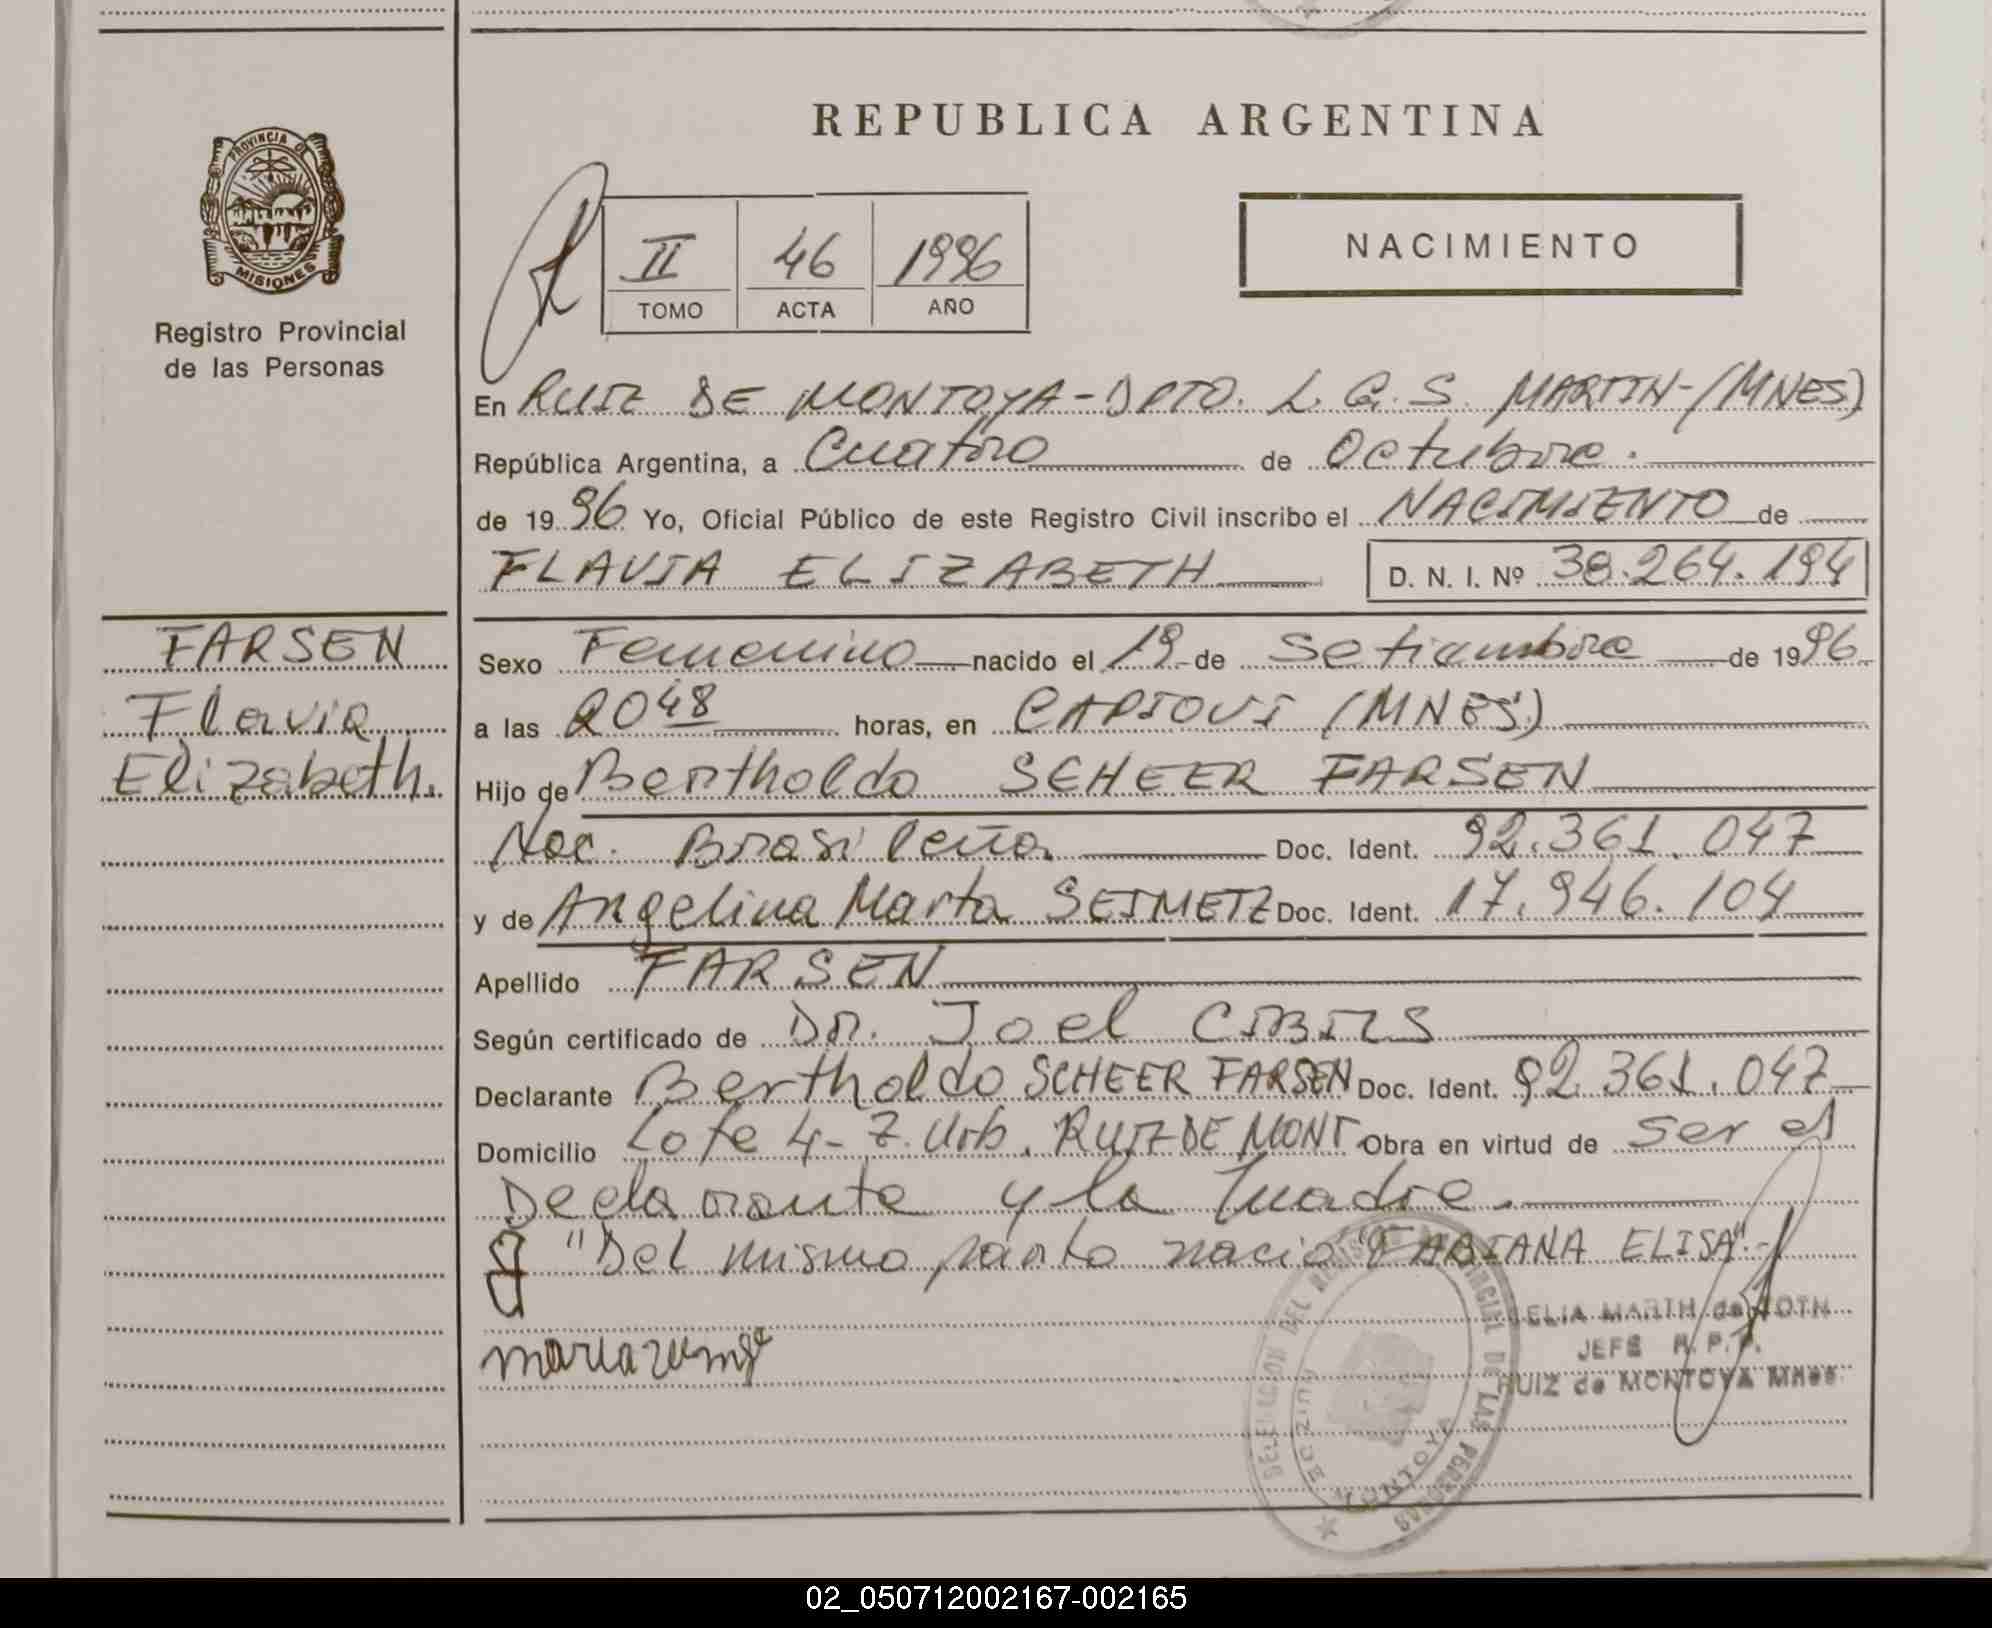 REPUBLICA ARGENTINA
PROVINCIA DE
MISIONES
Registro Provincial
de las Personas
II 46 1996
TOMO ACTA AÑO
NACIMIENTO
En RUIZ DE MONTOYA-DPTO. L.G.S. MARTIN-(MNES)
República Argentina, a Cuatro de Octubre.
de 1996 Yo, Oficial Público de este Registro Civil inscribo el NACIMIENTO de
FLAVIA ELIZABETH D. N. I. Nº 38.264.194
FARSEN
Flavia
Elizabeth.
Sexo Femenino nacido el 19 de Setiembre de 1996
a las 2048 horas, en CAPIOVI (MNES)
Hijo de Bertholdo SCHEER FARSEN
Nac. Brasileña Doc. Ident. 92.361.047
y de Angelina Marta SEIMETZ Doc. Ident. 17.946.104
Apellido FARSEN
Según certificado de Dr. Joel CIBILS
Declarante Bertholdo SCHEER FARSEN Doc. Ident. 92.361.047
Domicilio Lote 4- Z. Urb. RUIZ DE MONT Obra en virtud de ser el
Declarante y la Madre.
"Del mismo parto nacio "FABIANA ELISA".-
DELEGACION DEL REGISTRO PROVINCIAL DE LAS PERSONAS
RUIZ DE MONTOYA
JEFE R. P. P.
RUIZ de MONTOYA Mnes
02_050712002167-002165